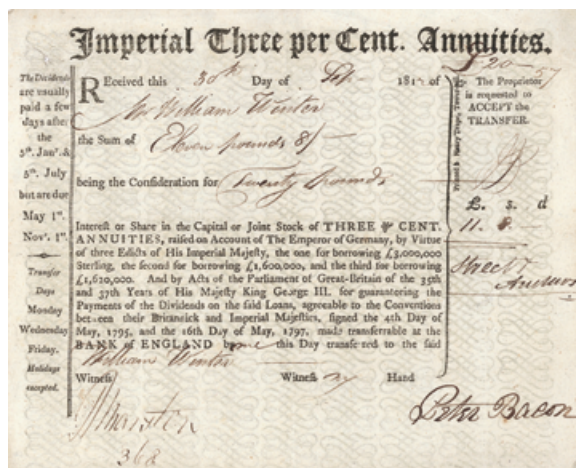 Imperial Three per Cent. Annuities.
The Dividends
are usually
paid a few
days after
the
5th. Janry. &
5th. July
but are due
May 1st.
Novr. 1st.
Transfer
Days
Monday
Wednesday
Friday.
Holidays
excepted.
Received this 30th Day of 181 of
Mr William Winter
the Sum of Eleven pounds 8/-
being the Consideration for Twenty Pounds
Interest or Share in the Capital or Joint Stock of THREE ₱ CENT.
ANNUITIES, raised on Account of The Emperor of Germany, by Virtue
of three Edicts of His Imperial Majesty, the one for borrowing £3,000,000
Sterling, the second for borrowing £1,600,000, and the third for borrowing
£1,620,000. And by Acts of the Parliament of Great-Britain of the 35th
and 37th Years of His Majesty King George III. for guaranteeing the
Payments of the Dividends on the said Loans, agreeable to the Conventions
between their Britannick and Imperial Majesties, signed the 4th Day of
May, 1795, and the 16th Day of May, 1797, made transferrable at the
BANK of ENGLAND by me this Day transferred to the said
William Winter
Witness Witness my Hand
Peter Bacon
368
£20
57
The Proprietor
is requested to
ACCEPT the
TRANSFER.
£. s. d
11. 8.